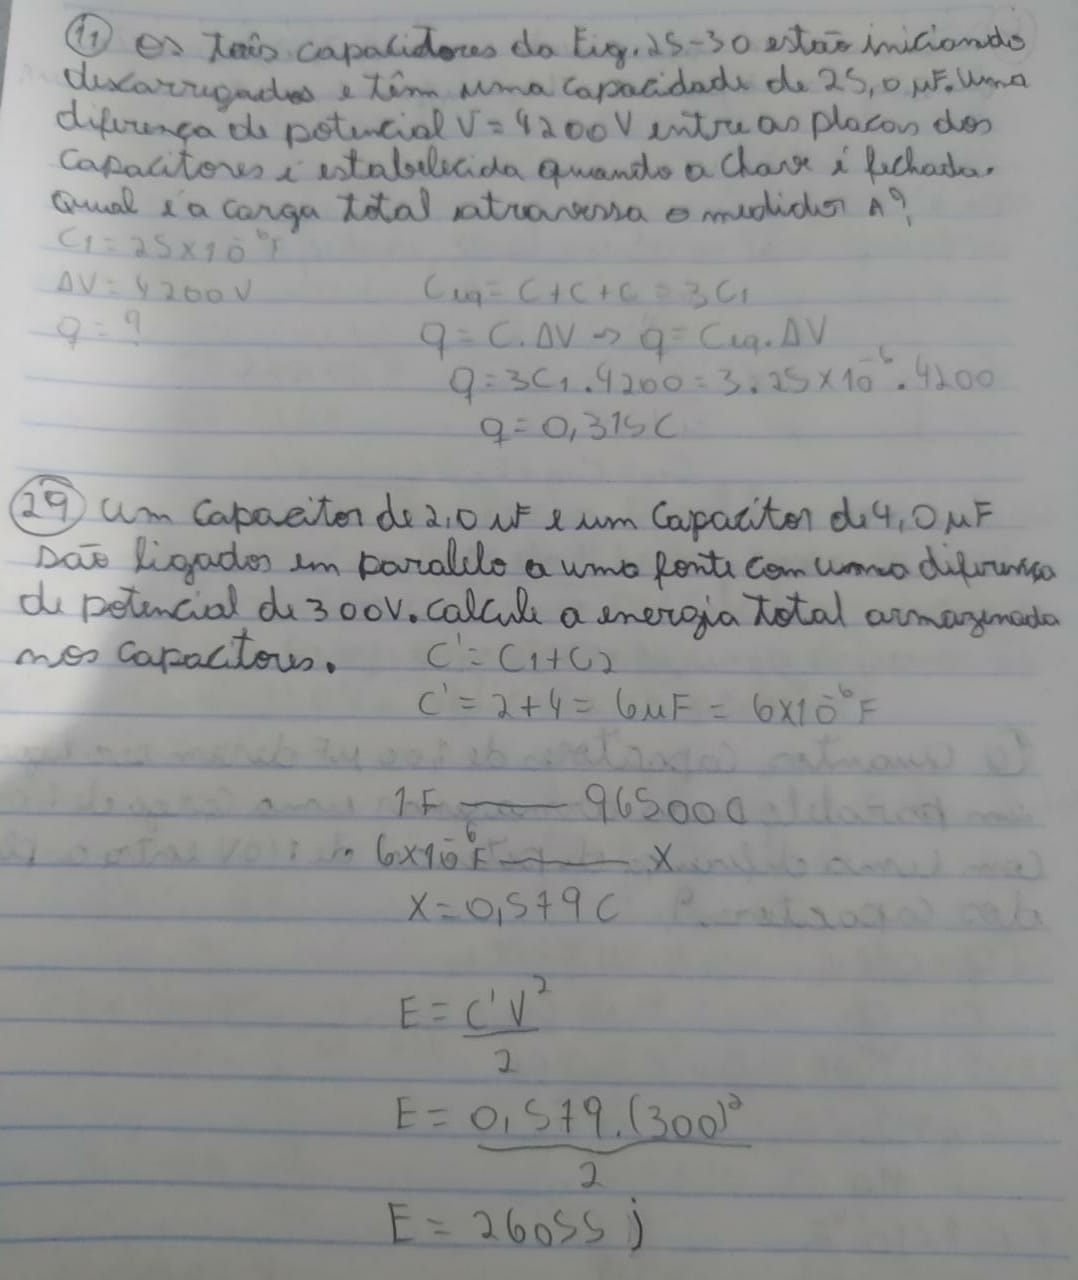 11 Os três capacidores da Fig. 25-30 estão iniciando
discarregados e têm uma capacidade de 25,0 µF. Uma
diferença de potencial V = 4200V entre as placas dos
capacitores é estabelecida quando a chave é fechada.
Qual é a carga total atravessa o medidor A?
C1 = 25x10^-6 F
ΔV = 4200V
q = ?
Ceq = C+C+C = 3C1
q = C.ΔV → q = Ceq.ΔV
q = 3C1.4200 = 3.25x10^-6.4200
q = 0,315C
29 Um capacitor de 2,0 µF e um capacitor de 4,0 µF
são ligados em paralelo a uma fonte com uma diferença
de potencial de 300V. Calcule a energia total armazenada
nos capacitores.
C' = C1+C2
C' = 2+4 = 6µF = 6x10^-6 F
1F — 96500C
6x10^-6 F — x
x = 0,579C
E = C'V²/2
E = 0,579.(300)²/2
E = 26055 j